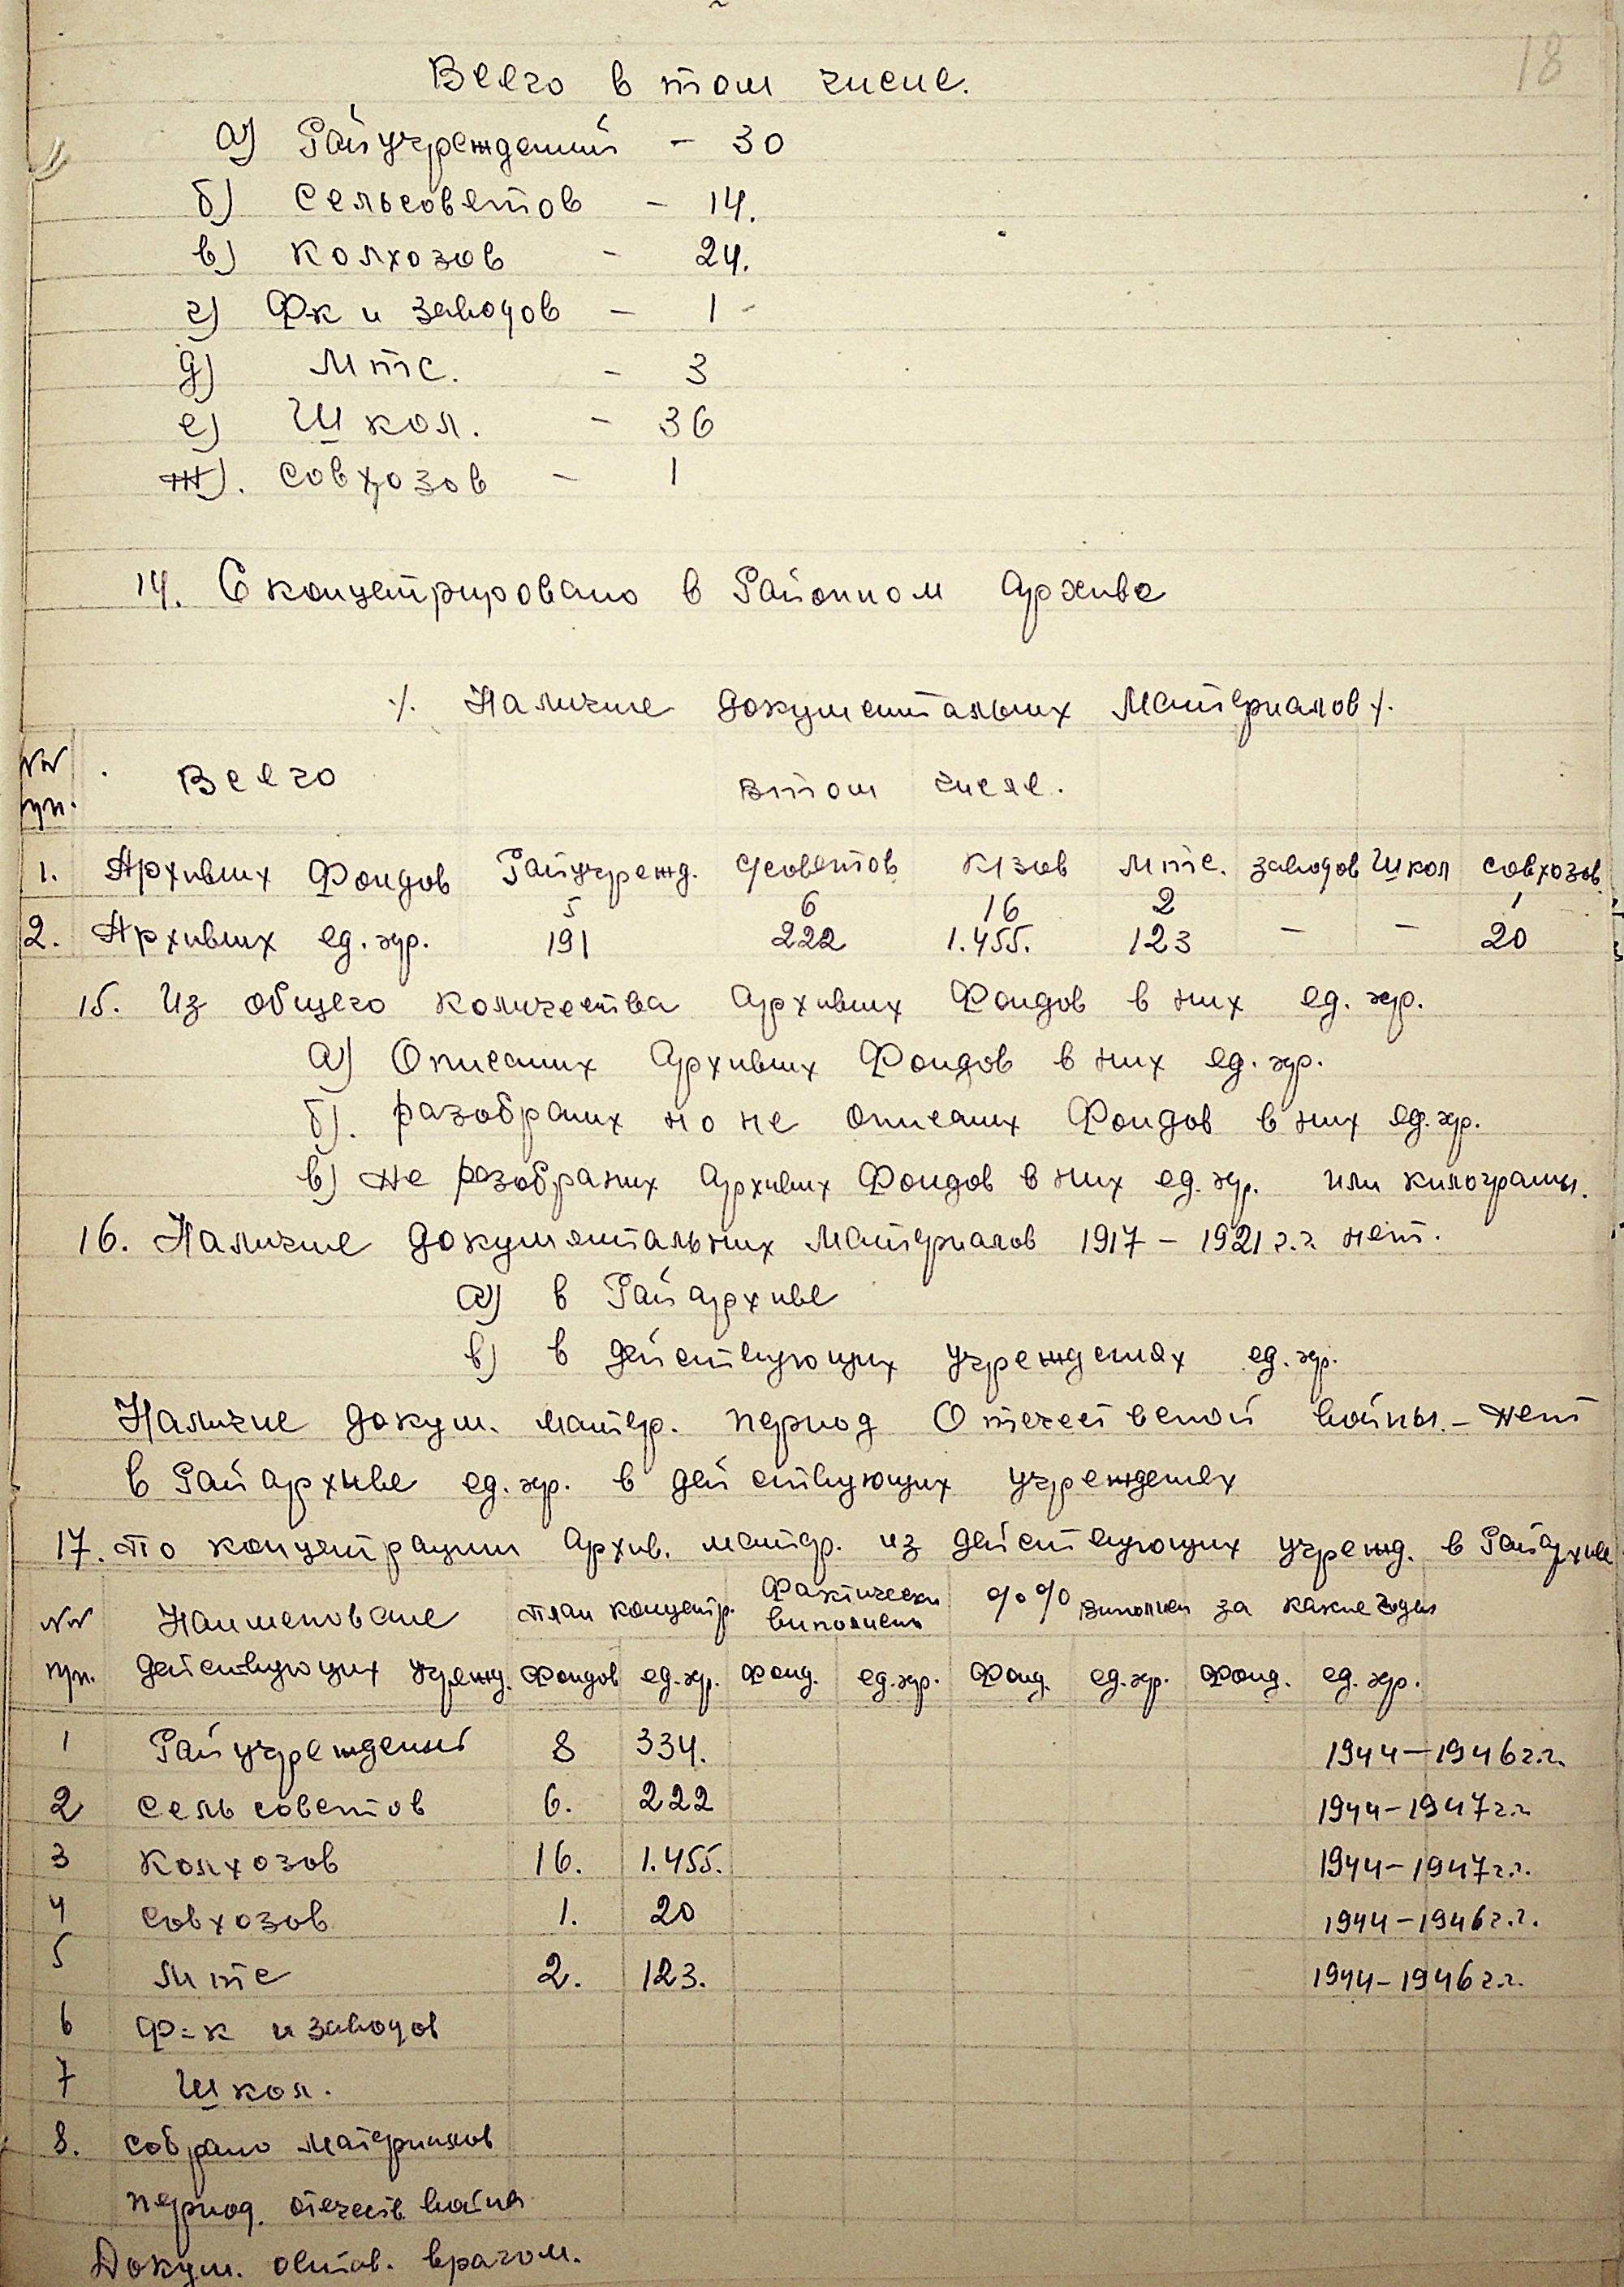 18
Всего в том числе.
а) Райучреждений – 30
б) Сельсоветов – 14.
в) Колхозов – 24.
г) Ф-к и заводов – 1
д) Мтс. – 3
е) Школ. – 36
ж). Совхозов – 1
14. Сконцетрировано в Районном Архиве
/. Наличие документальных Материалов /.
NN Всего в том числе.
пп.
1. Архивных Фондов Райучрежд. с/советов к/зов Мтс. заводов Школ совхозов.
5 6 16 2 1
2. Архивных ед. хр. 191 222 1.455. 123 – – 20
15. Из общего количества Архивных Фондов в них ед. хр.
а) Описаных Архивных Фондов в них ед. хр.
б). разобраных но не описаных Фондов в них ед. хр.
в) не разобраных Архивных Фондов в них ед. хр. или килограмы.
16. Наличие документальных материалов 1917 – 1921 г.г. нет.
а) в Райархиве
в) в действующих учреждениях ед. хр.
Наличие докум. матер. период Отечественой войны. – нет
в Райархиве ед. хр. в действующих учреждениях
17. По концетрации Архив. матер. из действующих учрежд. в Райархив
NN Наименование план концетр. Фактически выполнено %% выполнен за какие годы
пп. действующих учрежд. Фондов ед. хр. Фонд. ед. хр. Фонд. ед. хр. Фонд. ед. хр.
1 Райучреждений 8 334. 1944 – 1946 г.г.
2 Сельсоветов 6. 222 1944 – 1947 г.г.
3 Колхозов 16. 1.455. 1944 – 1947 г.г.
4 Совхозов 1. 20 1944 – 1946 г.г.
5 Мтс 2. 123. 1944 – 1946 г.г.
6 Ф-к и заводов
7 Школ.
8. Собрано материалов
период. отечеств. война
Докум. остав. врагом.